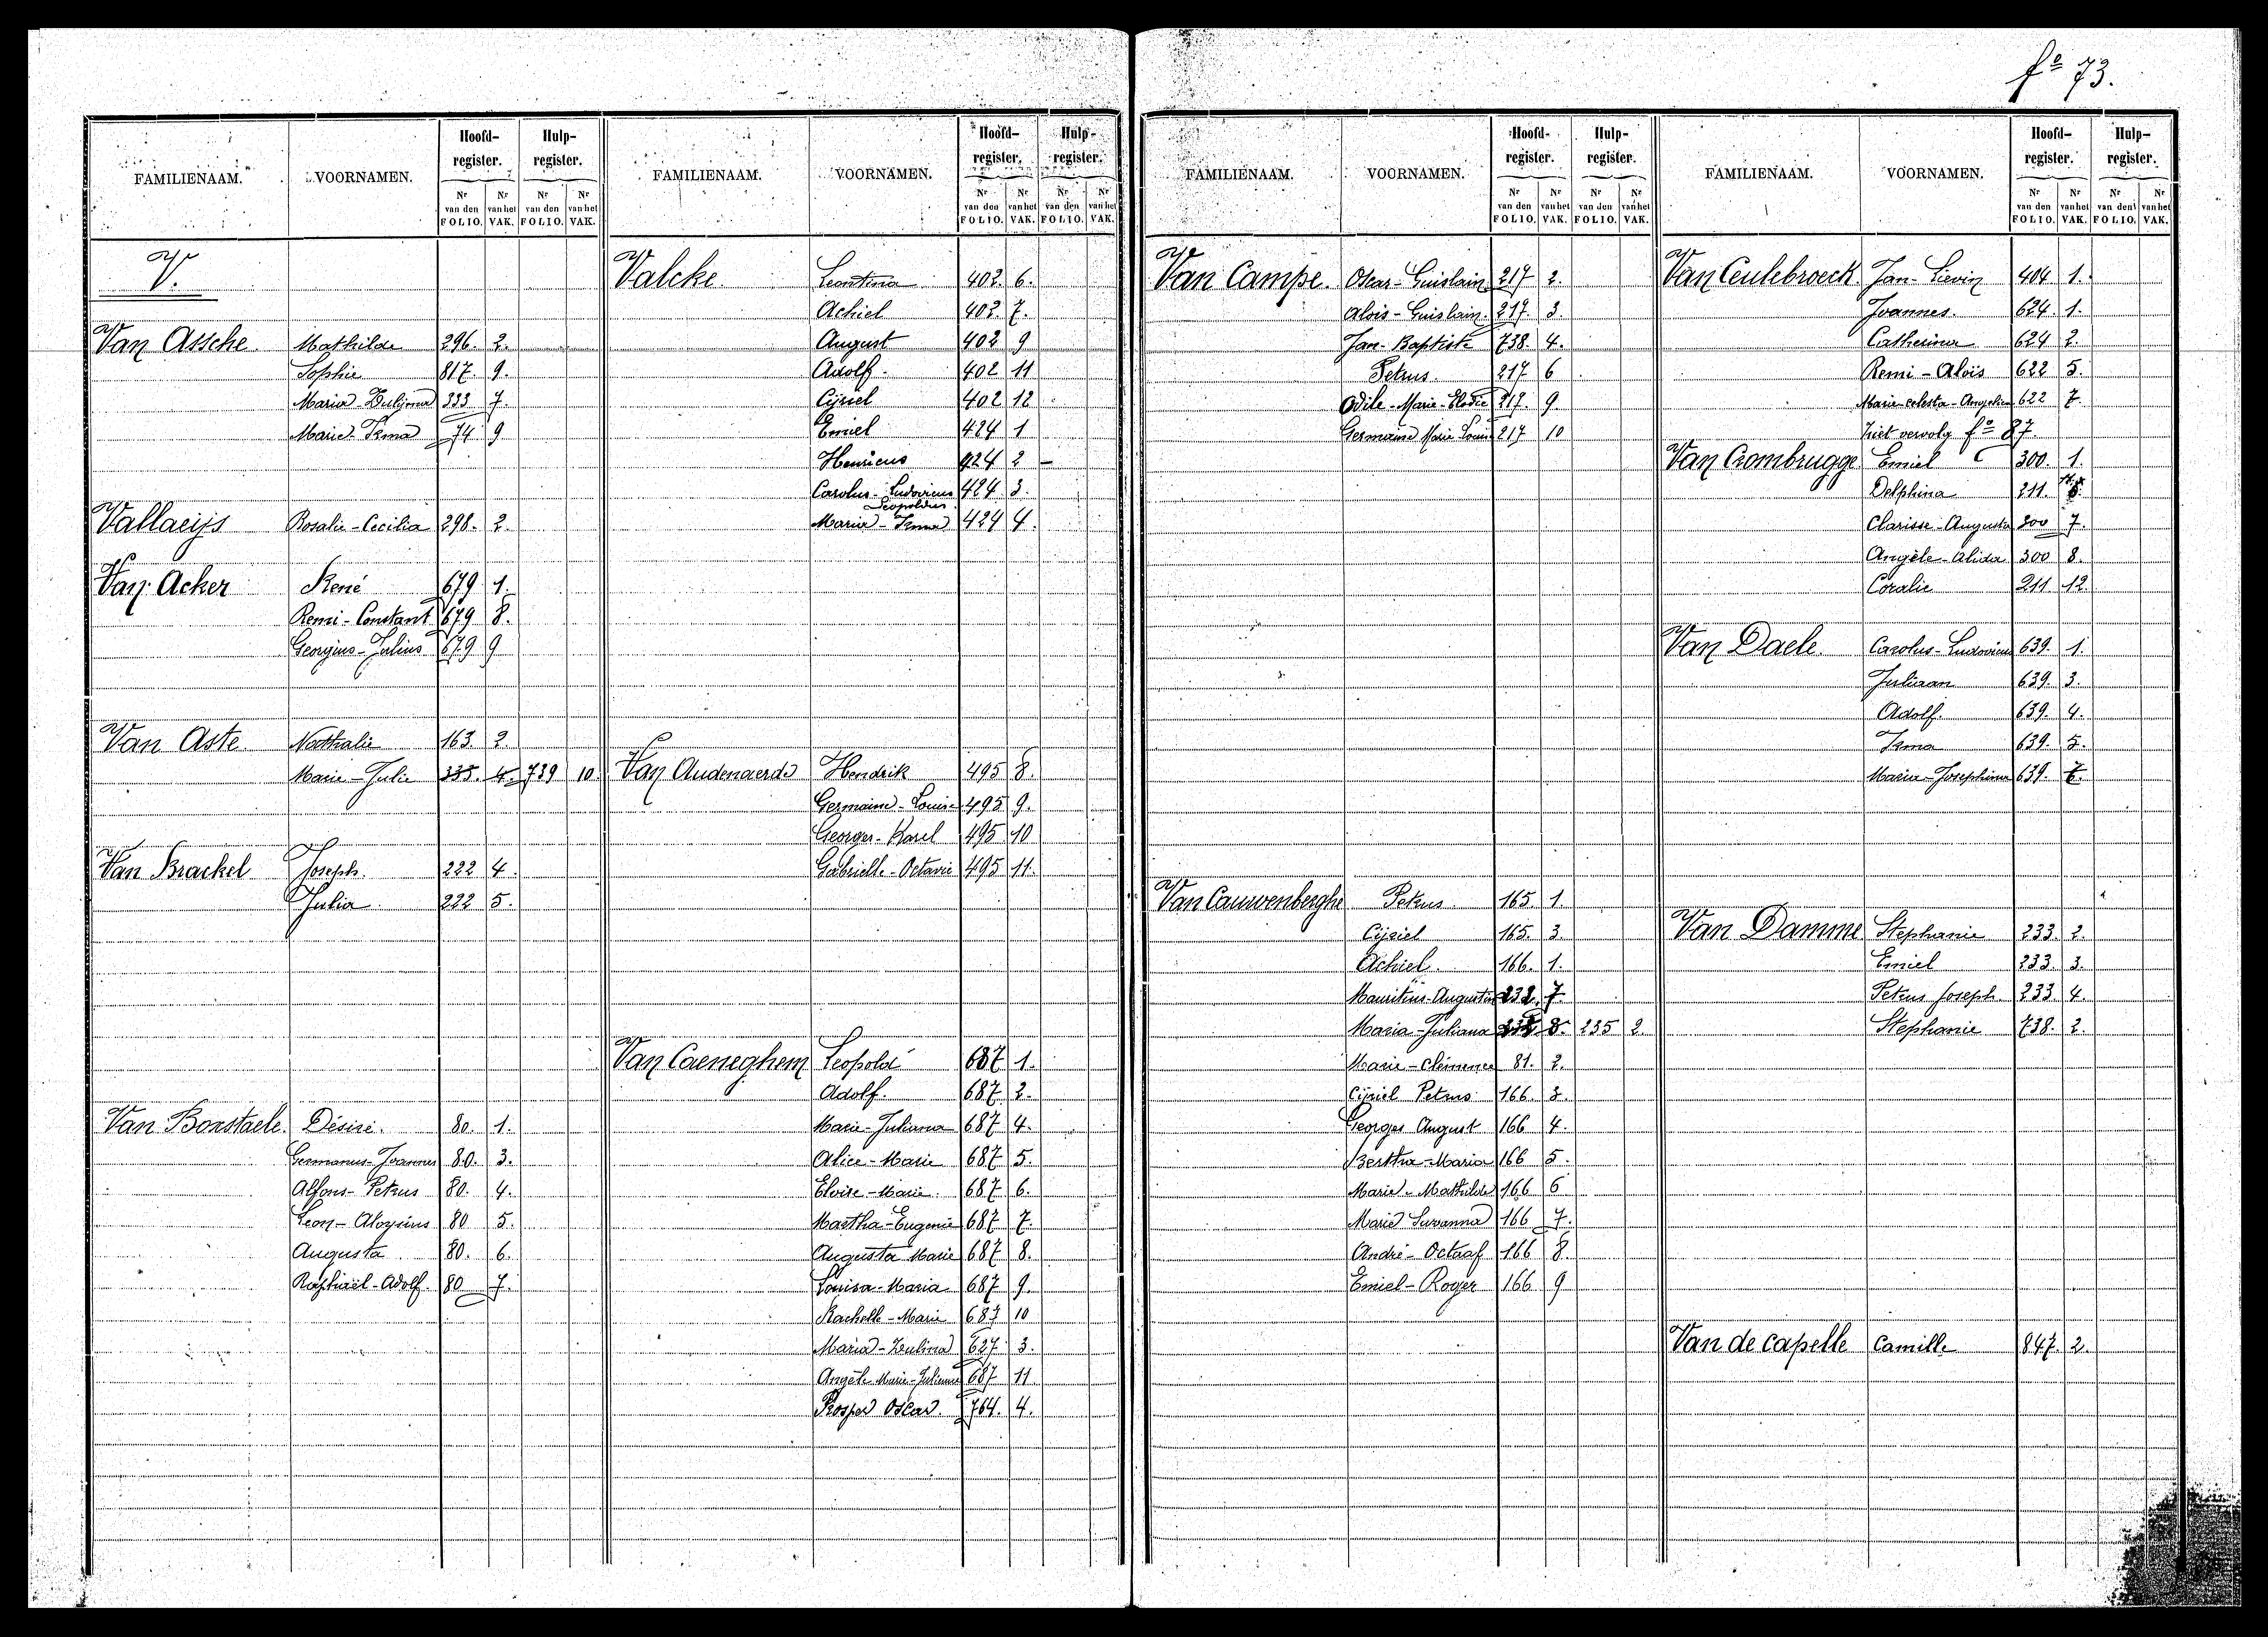 fº 73.
FAMILIENAAM. VOORNAMEN. Hoofd-register. Hulp-register.
Nr van den FOLIO. Nr van het VAK. Nr van den FOLIO. Nr van het VAK.
V.
Van Assche Mathilde 296. 2.
Sophie 817. 9.
Maria-Zulijma 333 7.
Marie-Irma 74 9
Vallaeijs Rosalie-Cecilia 298. 2.
Van Acker René 679 1.
Remi-Constant 679 8.
Georgius-Julius 679 9
Van Aste Nathalie 163 2.
Marie-Julie 335. 4. 739 10.
Van Brackel Joseph. 222 4.
Julia. 222 5.
Van Borstaele. Désiré. 80. 1.
Germanus-Joannes 80. 3.
Alfons-Petrus 80. 4.
Leon-Aloysius 80 5.
Augusta 80. 6.
Raphaël-Adolf. 80 7.
FAMILIENAAM. VOORNAMEN. Hoofd-register. Hulp-register.
Nr van den FOLIO. Nr van het VAK. Nr van den FOLIO. Nr van het VAK.
Valcke. Leontina 402. 6.
Achiel 402. 7.
August 402 9
Adolf. 402 11
Cijriel 402 12
Emiel 424 1
Henricus 424 2 –
Carolus-Ludovicus 424 3.
Leopoldus
Maria-Irma 424 4.
Van Audenaerde Hendrik 495 8.
Germaine-Louise 495 9.
Georges-Karel 495 10
Gabrielle-Octavie 495 11.
Van Caeneghem Leopold 687 1.
Adolf. 687 2.
Marie-Juliana 687 4.
Alice-Marie 687 5.
Eloise-Marie. 687 6.
Martha-Eugenie 687 7.
Augusta Marie 687 8.
Louisa-Maria 687 9.
Rachelle-Marie 687 10
Maria-Zulima 627 3.
Angèle Marie-Julienne 687 11
Prosper Oscar. 764. 4.
FAMILIENAAM. VOORNAMEN. Hoofd-register. Hulp-register.
Nr van den FOLIO. Nr van het VAK. Nr van den FOLIO. Nr van het VAK.
Van Campe. Oscar-Guislain 217 2.
Alois-Guislain. 217. 3.
Jan-Baptiste 738. 4.
Petrus. 217 6
Odile-Marie-Elodie 217. 9
Germaine Marie Louise 217 10
Van Cauwenberghe Petrus 165. 1.
Cijriel 165. 3.
Achiel. 166. 1.
Mauritius-Augustin 232. 7.
Maria-Juliana 232 8. 235 2.
Marie-Clémence 81. 2.
Cijriel Petrus 166. 3.
Georges August 166 4.
Bertha-Maria 166 5.
Marie-Mathilde 166 6
Marie Suzanna 166 7.
André-Octaaf 166 8
Emiel-Roger 166 9
FAMILIENAAM. VOORNAMEN. Hoofd-register. Hulp-register.
Nr van den FOLIO. Nr van het VAK. Nr van den FOLIO. Nr van het VAK.
Van Ceulebroeck. Jan-Lievin 404 1.
Joannes. 624. 1.
Catherina 624 2.
Remi-Alois 622 5.
Marie-celesta-Angelica 622 7.
ziet vervolg fº 87.
Van Crombrugge Emiel 300. 1.
Delphina 211.
Clarisse-Augusta 300 7.
Angèle-Alida 300 8.
Coralie 211 12.
Van Daele. Carolus-Ludovicus 639. 1.
Juliaan 639. 3.
Adolf. 639. 4.
Irma 639. 5.
Maria-Josephina 639.
Van Damme Stephanie 233. 2.
Emiel 233. 3.
Petrus Joseph. 233. 4.
Stephanie 738. 2.
Van de capelle Camille 847. 2.